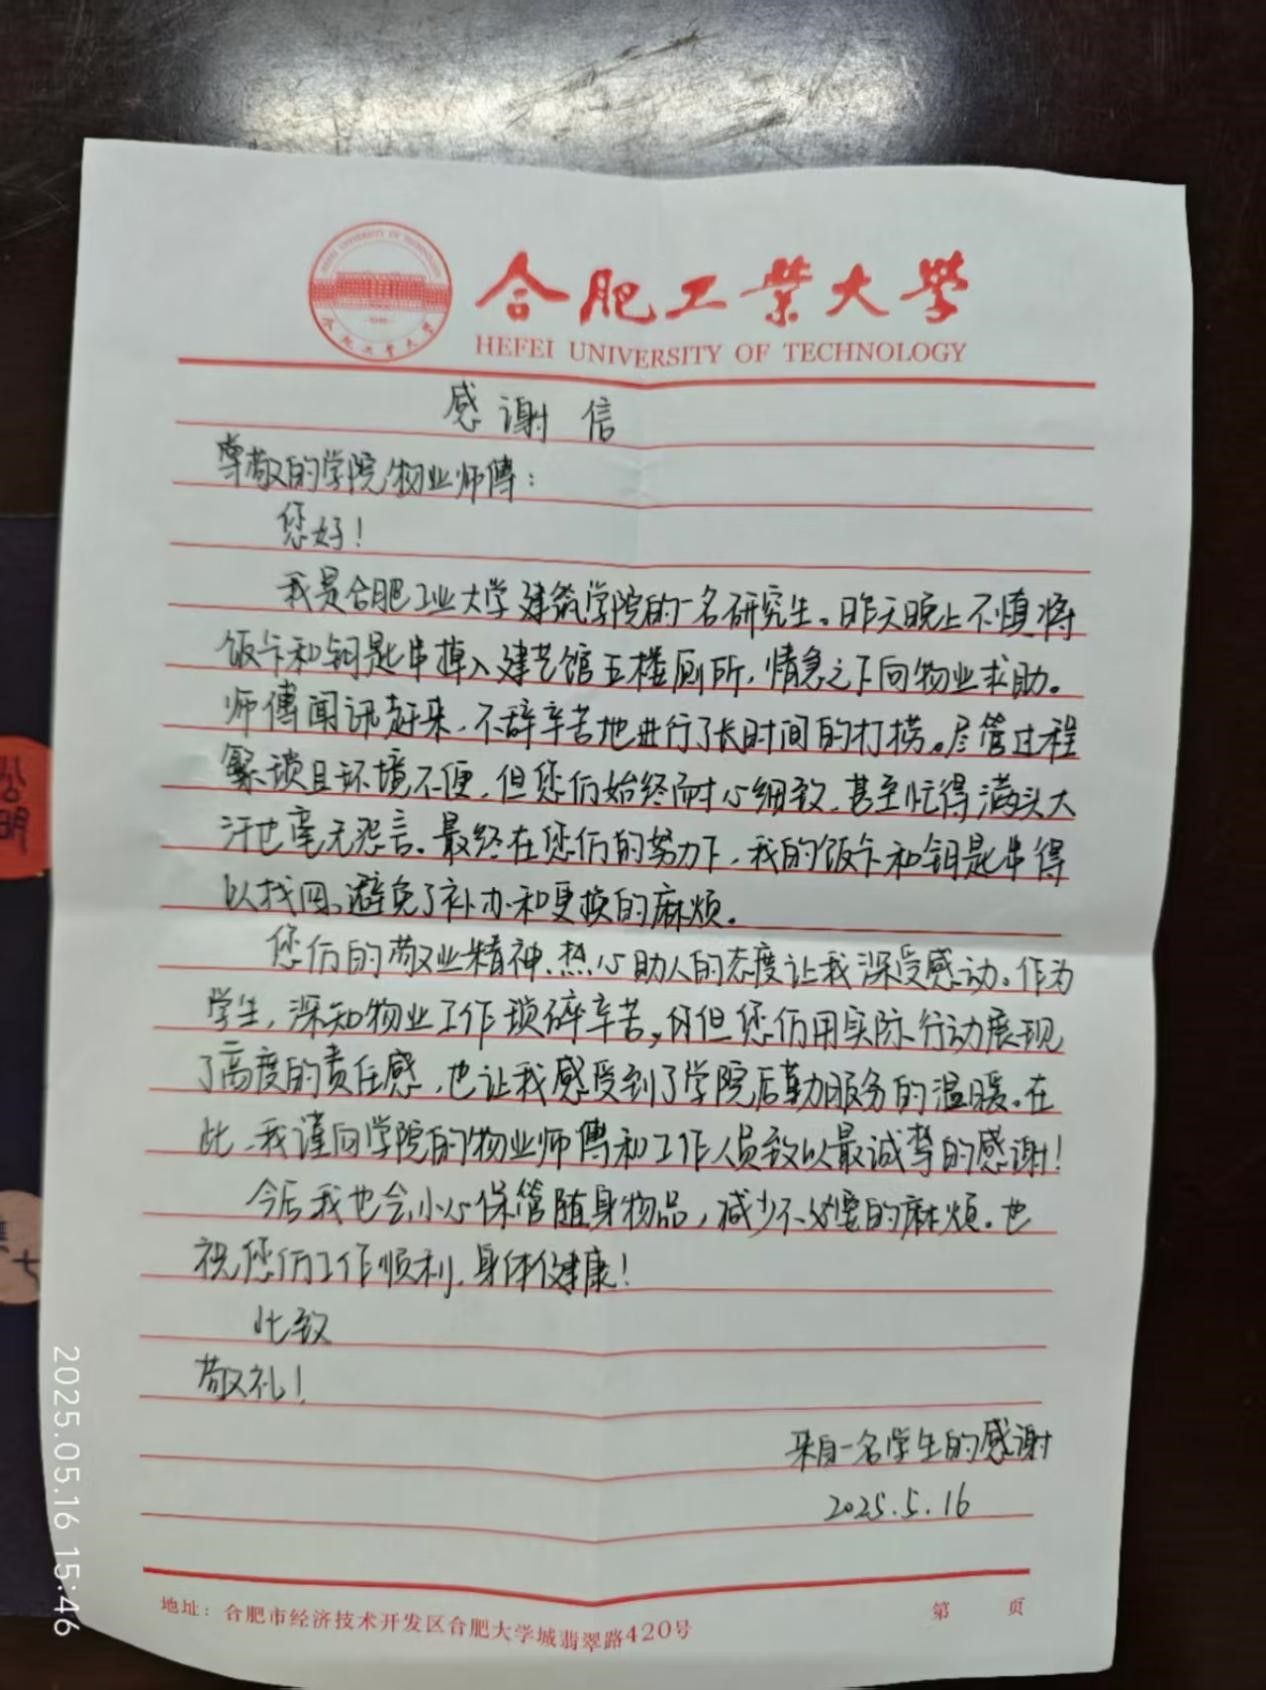 合肥工业大学
HEFEI UNIVERSITY OF TECHNOLOGY
感谢信
尊敬的学院物业师傅：
您好！
我是合肥工业大学建筑学院的一名研究生。昨天晚上不慎将
饭卡和钥匙串掉入建艺馆五楼厕所，情急之下向物业求助。
师傅闻讯赶来，不辞辛苦地进行了长时间的打捞。尽管过程
繁琐且环境不便，但您们始终耐心细致，甚至忙得满头大
汗也毫无怨言。最终在您们的努力下，我的饭卡和钥匙串得
以找回，避免了补办和更换的麻烦。
您们的敬业精神、热心助人的态度让我深受感动。作为
学生，深知物业工作琐碎辛苦，但您们用实际行动展现
了高度的责任感，也让我感受到了学院后勤服务的温暖。在
此，我谨向学院的物业师傅和工作人员致以最诚挚的感谢！
今后我也会小心保管随身物品，减少不必要的麻烦。也
祝您们工作顺利，身体健康！
此致
敬礼！
来自一名学生的感谢
2025.5.16
地址：合肥市经济技术开发区合肥大学城翡翠路420号
第 页
2025.05.16 15:46